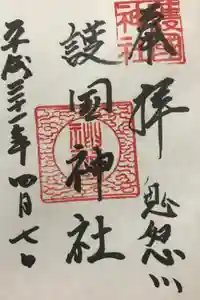 奉拝
鬼怒川
護国神社
平成三十一年四月七日
護國
神社